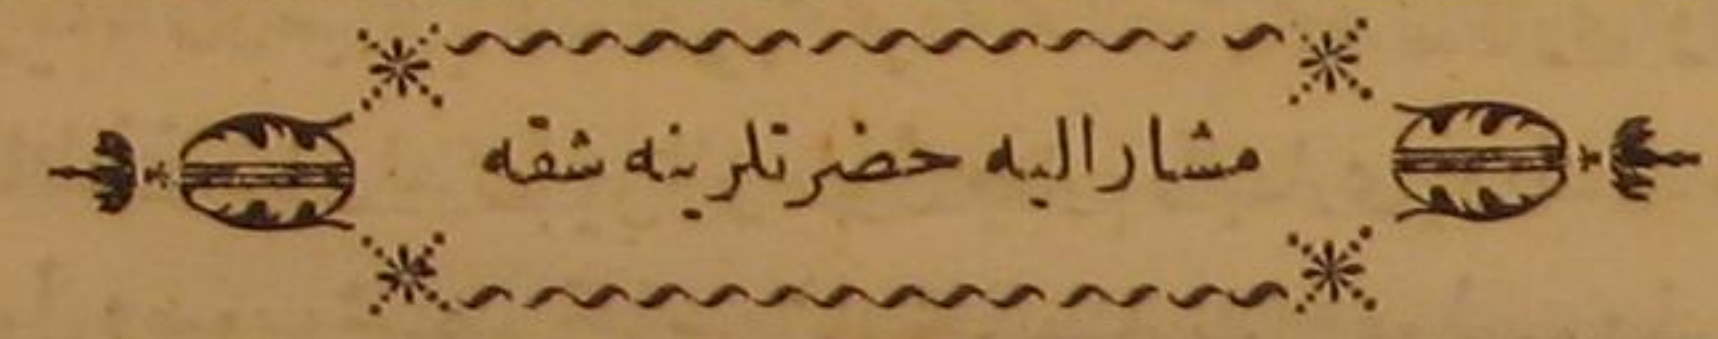 مشار اليه حضرتلرينه شقه